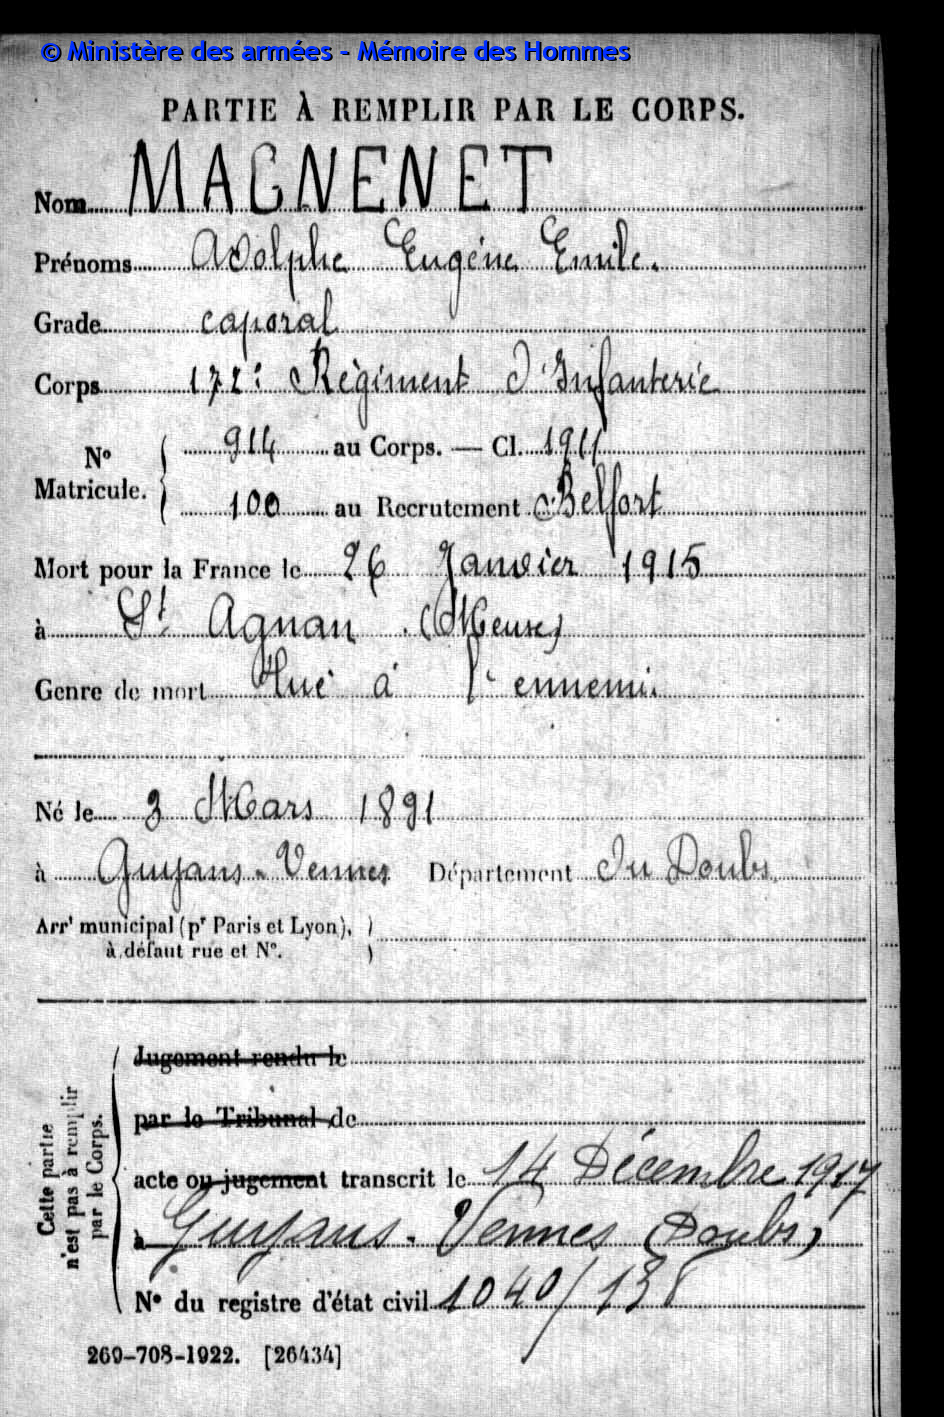 © Ministère des armées - Mémoire des Hommes
PARTIE À REMPLIR PAR LE CORPS.
Nom MAGNENET
Prénoms Adolphe Eugène Emile.
Grade caporal
Corps 172e Régiment d'Infanterie
N° Matricule. 914 au Corps. — Cl. 1911
100 au Recrutement Belfort
Mort pour la France le 26 Janvier 1915
à St Agnan (Meuse)
Genre de mort Tué à l'ennemi
Né le 3 Mars 1891
à Guyans-Vennes Département du Doubs
Arrt municipal (pr Paris et Lyon),
à défaut rue et N°.
Cette partie n'est pas à remplir par le Corps.
Jugement rendu le
par le Tribunal de
acte ou jugement transcrit le 14 Décembre 1917
à Guyans-Vennes (Doubs)
N° du registre d'état civil 1040/138
269-708-1922. [26434]